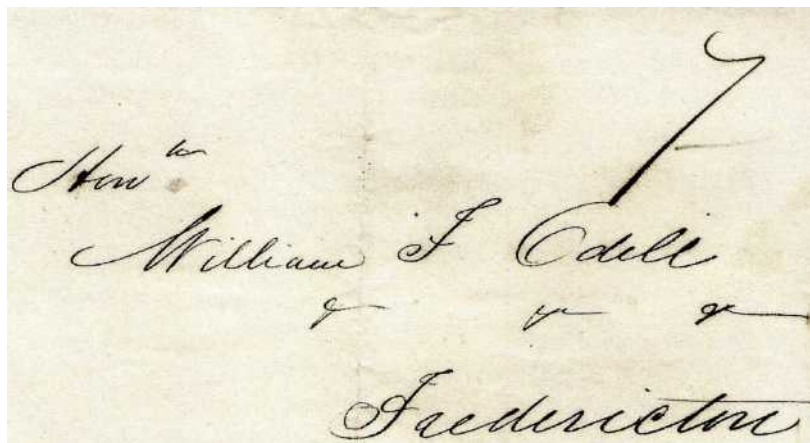 7
Honble
William F Odell
& & &
Fredericton